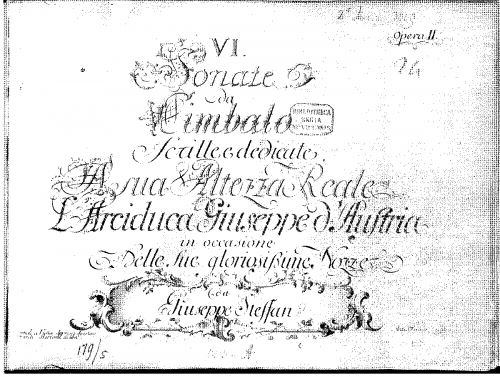 Opera II.
VI.
Sonate
da
Cimbalo
BIBLIOTHECA
REGIA
Scritte, e dedicate
A sua Altezza Reale
L'Arciduca Giuseppe d'Austria
in occasione
Delle sue gloriosissime Nozze
da
Giuseppe Steffan
179/5